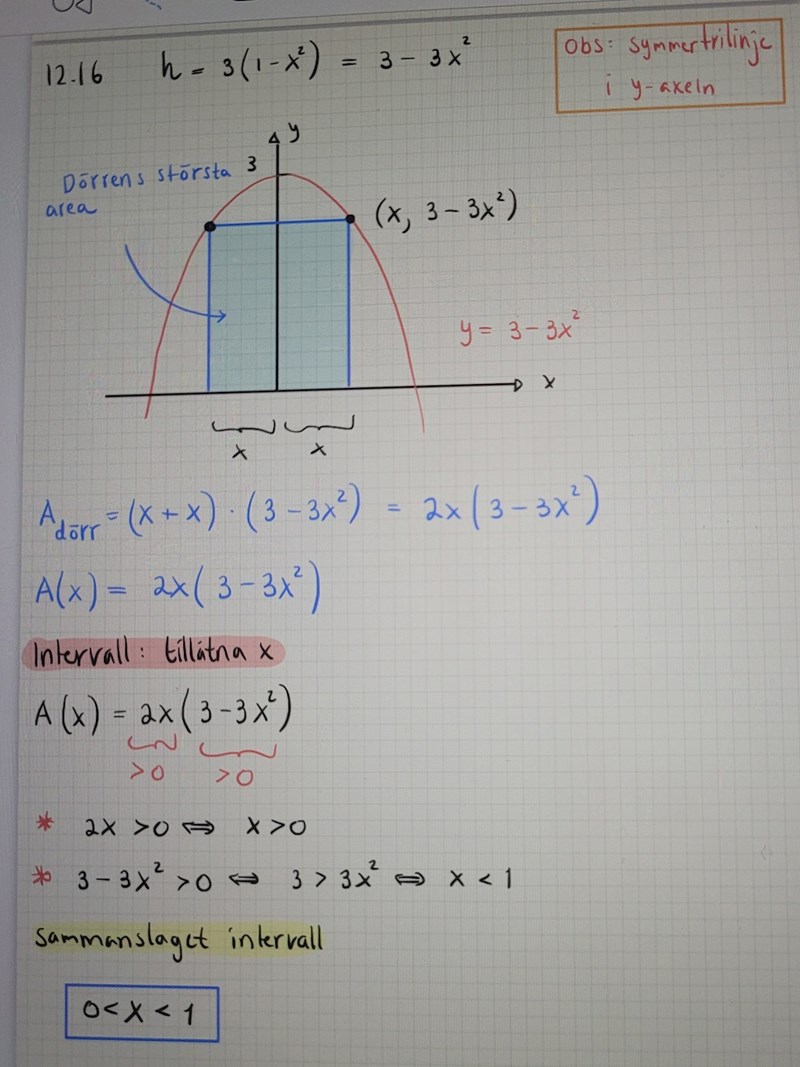 12.16 h = 3(1-x²) = 3 - 3x²
Obs: symmertrilinje
i y-axeln
y
3
Dörrens största
area
(x, 3-3x²)
y = 3-3x²
x
x x
A dörr = (x+x)·(3-3x²) = 2x(3-3x²)
A(x) = 2x(3-3x²)
Intervall: tillåtna x
A(x) = 2x(3-3x²)
>0 >0
* 2x >0 ⇔ x>0
* 3-3x² >0 ⇔ 3 > 3x² ⇔ x < 1
sammanslaget intervall
0<x<1